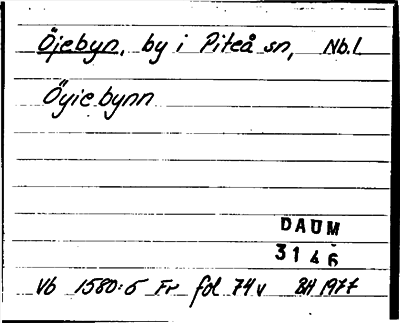 Öjebyn, by i Piteå sn, Nb.l.
Öyiebynn
DAUM
3146
Vb 1580:5 Fr fol 74v BH 1977